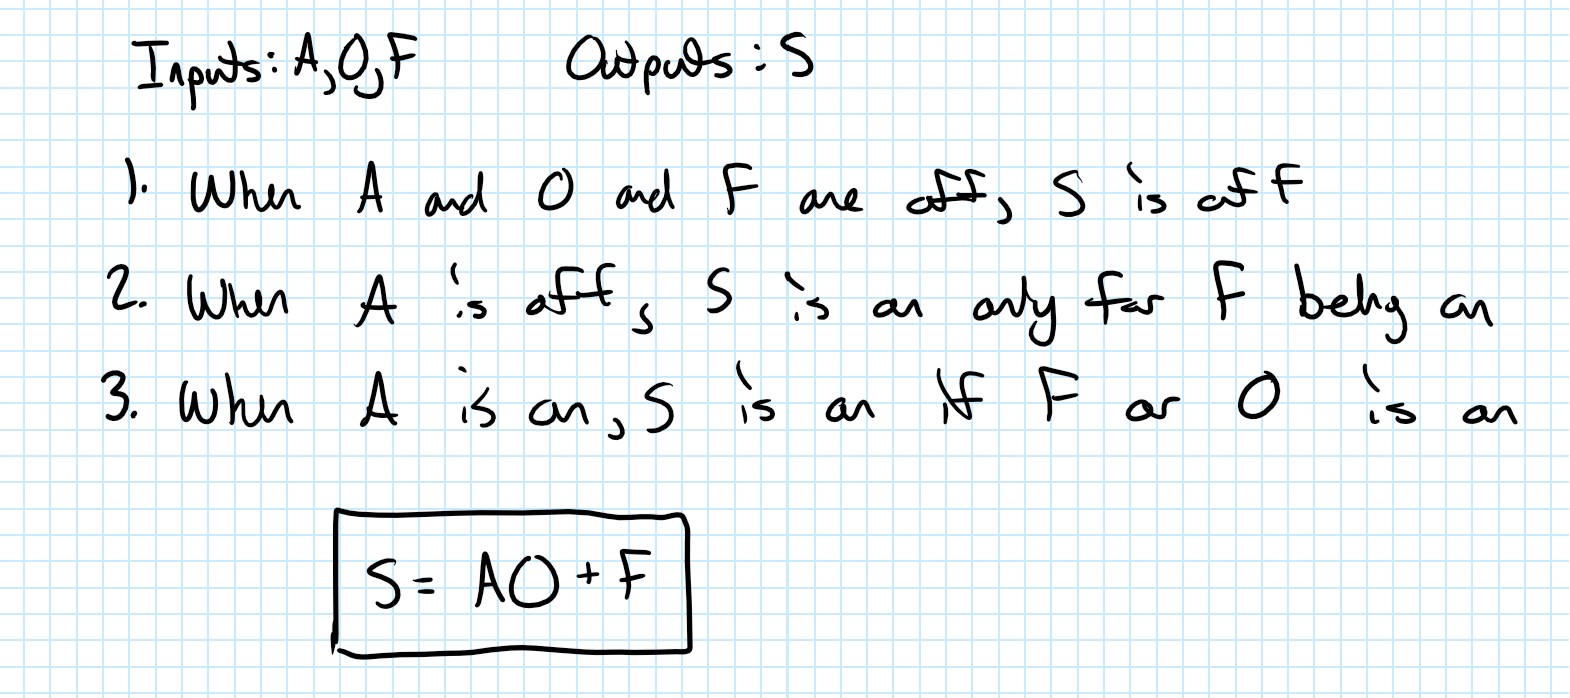 Inputs: A,O,F Outputs: S
1. When A and O and F are off, S is off
2. When A is off, S is on only for F being on
3. When A is on, S is on if F or O is on
S = AO + F